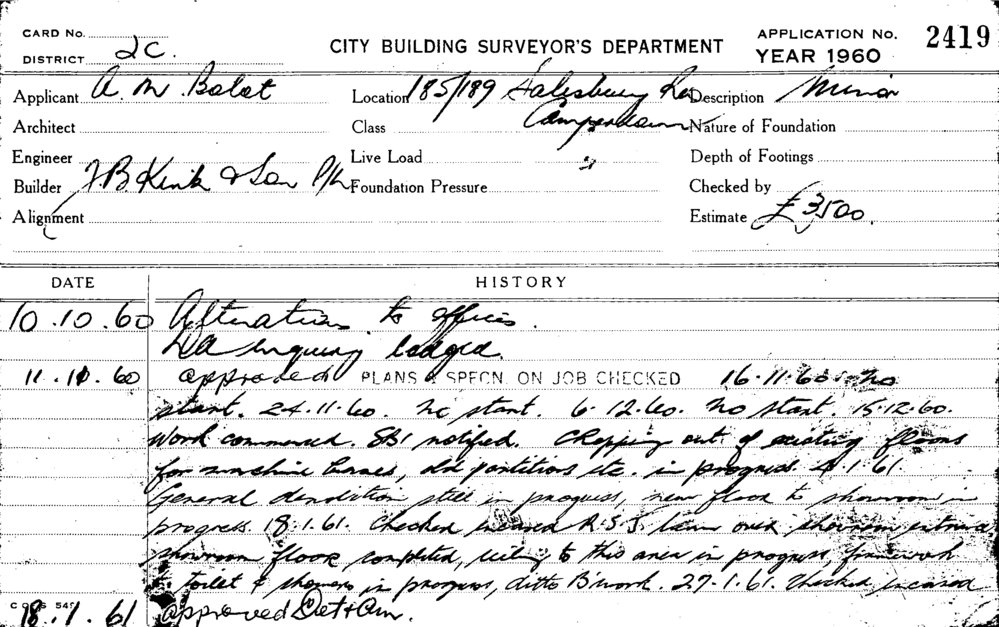 CARD No.
DISTRICT 2C.
CITY BUILDING SURVEYOR'S DEPARTMENT
APPLICATION No. 2419
YEAR 1960
Applicant A. M. Balat Location 185/189 Salisbury Rd Description Minor
Architect Class Camperdown Nature of Foundation
Engineer Live Load Depth of Footings
Builder J.B. Kirk & Son P/L Foundation Pressure Checked by
Alignment Estimate £3,500.
DATE HISTORY
10.10.60 Alterations to offices.
DA enquiry lodged.
11.10.60 approved PLANS & SPECN. ON JOB CHECKED 16.11.60. no
start. 24.11.60. no start. 6.12.60. No start. 15.12.60.
Work commenced. notified. Chopping out of existing floors
for machine bases, old partitions etc. in progress. 4.1.61.
General demolition still in progress, new floor to showroom in
progress. 18.1.61. Checked encased R.S.J. over showroom entrance
showroom floor completed, ceiling to this area in progress, framework
to toilet & showers in progress, ditto B'work. 27.1.61. Checked encased
18.1.61 approved